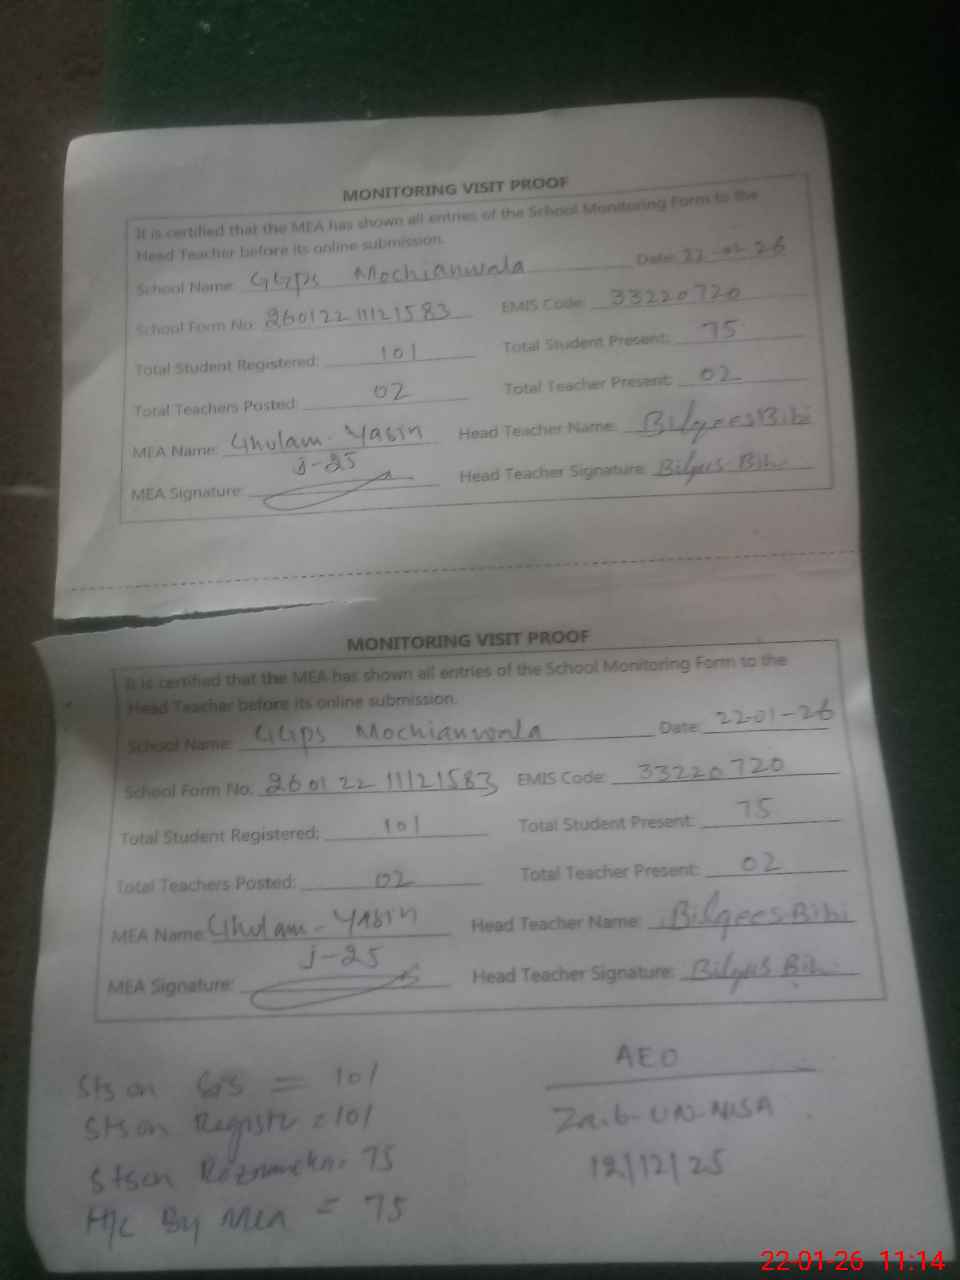 MONITORING VISIT PROOF
It is certified that the MEA has shown all entries of the School Monitoring Form to the
Head Teacher before its online submission.
School Name: GGps Mochianwala Date: 22-01-26
School Form No: 260122 11121583 EMIS Code: 33220720
Total Student Registered: 101 Total Student Present: 75
Total Teachers Posted: 02 Total Teacher Present: 02
MEA Name: Ghulam-Yasin Head Teacher Name: Bilqees Bibi
j-25
MEA Signature: Head Teacher Signature: Bilqees Bibi
MONITORING VISIT PROOF
It is certified that the MEA has shown all entries of the School Monitoring Form to the
Head Teacher before its online submission.
School Name: GGps Mochianwala Date: 22-01-26
School Form No: 260122 11121583 EMIS Code: 33220720
Total Student Registered: 101 Total Student Present: 75
Total Teachers Posted: 02 Total Teacher Present: 02
MEA Name: Ghulam-YAsin Head Teacher Name: Bilqees Bibi
j-25
MEA Signature: Head Teacher Signature: Bilqees Bibi
Sts on = 101
Sts on Registr = 101
Sts on 75
H/C By MEA = 75
AEO
Zaib-UN-NISA
12/12/25
22-01-26 11:14